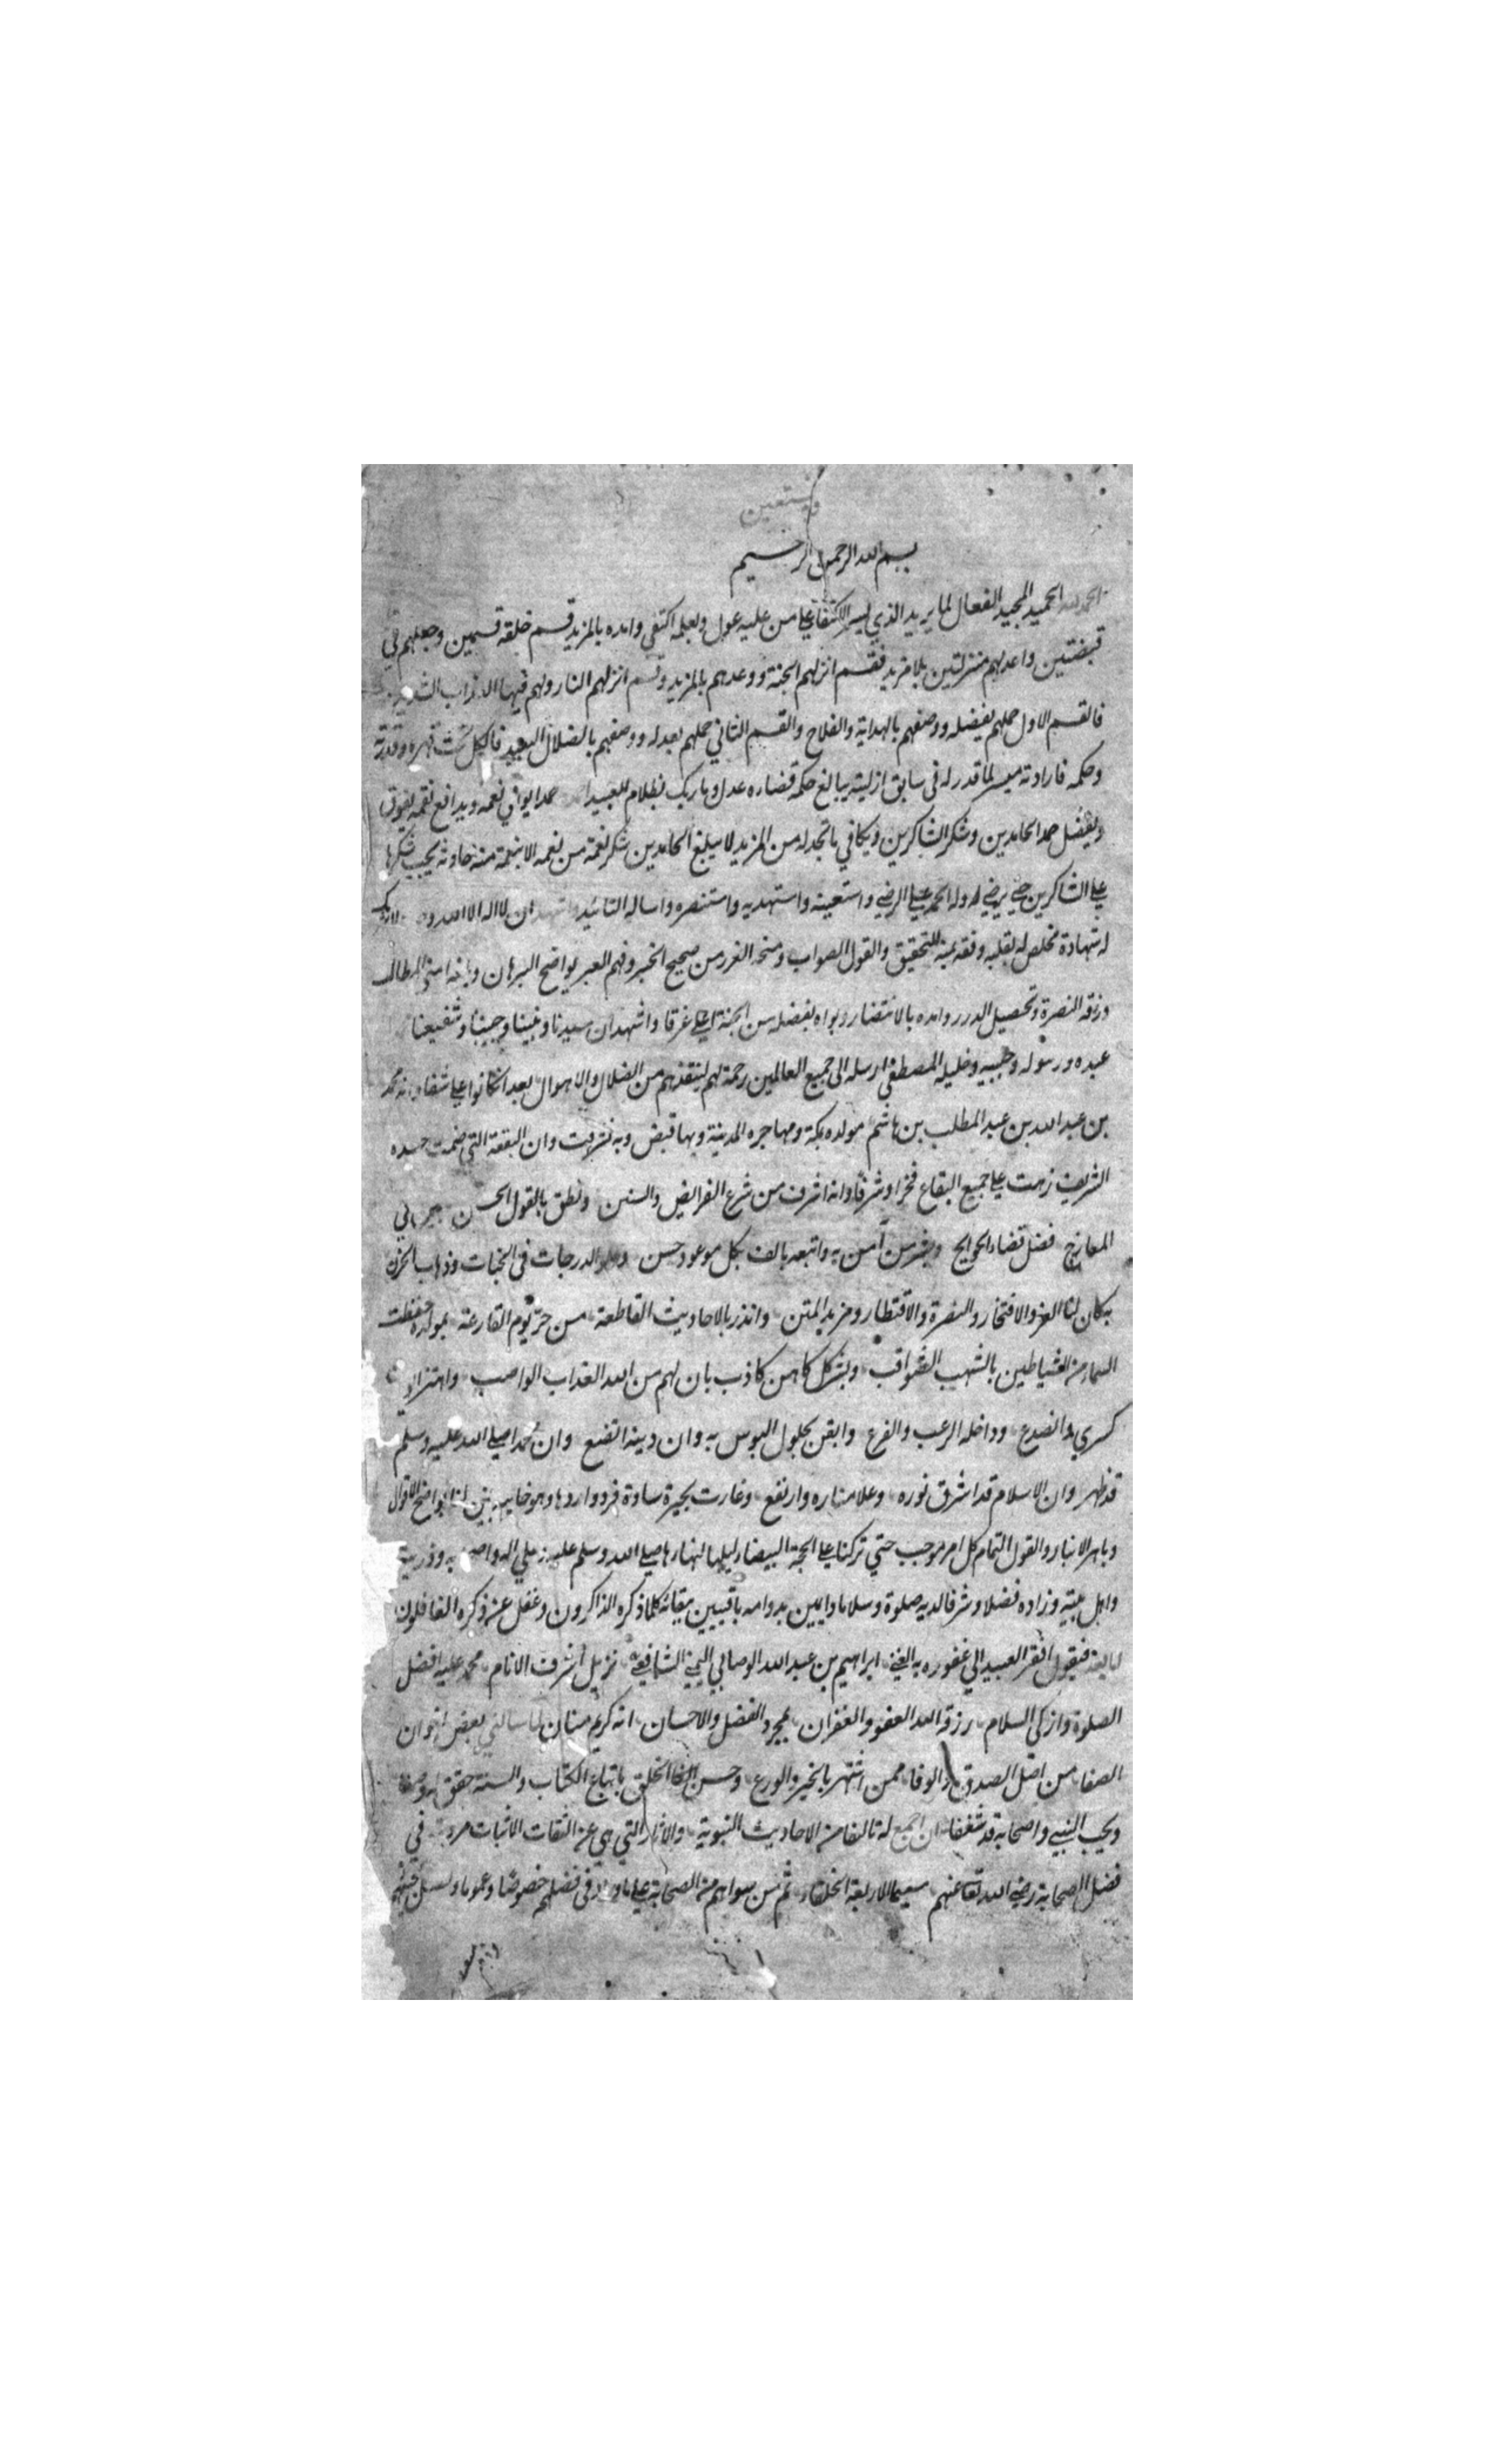 وبه نستعين
بسم الله الرحمن الرحيم
الحمد لله الحميد المجيد الفعال لما يريد الذي يسر الاكتفا علي من عليه عول وبعلمه اكتفي وامده بالمزيد قسم خلقه قسمين وجعلهم في
قبضتين واعد لهم منزلتين بلا مزيد فقسم انزلهم الجنة ووعدهم بالمزيد وقسم انزلهم النار ولهم فيها العذاب الشديد
فالقسم الاول حملهم بفضله ووصفهم بالهداية والفلاح والقسم الثاني حملهم بعدله ووصفهم بالضلال البعيد فالكل تحت قهره وقدرته
وحكمه فارادته ميسر لما قدر له في سابق ازليته ببالغ حكمة قضاره عدل وما ربك بظلام للعبيد حمدا يوافي نعمه ويدافع نقمه يفوق
ويفضل حمد الحامدين وشكر الشاكرين ويكافي ما تجدد له من المزيد لا يبلغ الحامدين شكر نعمة من نعمه الا بنعمة منه حادثه يجب شكرها
علي الشاكرين حتي يرضي له وله الحمد علي الرضي واستعينه واستهديه واستنصره واساله التائيد واشهد ان لا اله الا الله وحده لا شريك
له شهادة مخلص له بقلبه وفقه بمنه للتحقيق والقول الصواب ومنحه الغرر من صحيح الخبر وفهم العبر بواضح البرهان المطالب
ورزقه النصرة وتحصيل الدرر وامده بالانتضار وبواه بفضله من الجنة اعلي غرفا واشهد ان سيدنا ونبينا وحبيبنا وشفيعنا
عبده ورسوله وحبيبه وخليله المصطفي ارسله الي جميع العالمين رحمة لهم لينقذهم من الضلال والاهوال بعد ان كانوا علي شفا محمد
بن عبد الله بن عبد المطلب بن هاشم مولده بمكة ومهاجره المدينة وبها قبض وبه تشرفت وان البقعة التي ضمت جسده
الشريف زهت علي جميع البقاع فخرا وشرفا وانه اشرف من شرع الفرايض والسنن ونطق بالقول الحسن
المعارج فضل قضاء الحوايج وبشر من آمن به واتبعه بالف بكل موعود حسن الدرجات في الجنات وذهاب الحزن
به كان لنا العز والافتخار والنصرة والاقتطار ومزيد المتن وانذر بالاحاديث القاطعة من حر يوم القارعة بمولده حفظت
السما من الشياطين بالشهب الثواقب وبشر كل كاهن كاذب بان لهم من الله العذاب الواصب واهتز
كسري وانصدع وداخله الرعب والفزع وايقن بحلول البوس به وان دينه اتضع وان محمدا صلي الله عليه وسلم
قد ظهر وان الاسلام قد اشرق نوره وعلا مناره وارتفع وغارت بحيرة ساوة فرد واردها وهو خايب بين لنا بواضح الاقوال
وباهر الانبار والقول التمام كل امر موجب حتي تركنا علي المحجة البيضا ليلها كنهارها صلي الله وسلم عليه وعلي اله واصحابه وذريته
واهل بيته وزاده فضلا وشرفا لديه صلوة وسلاما دايمين بدوامه باقيين ببقائه كلما ذكره الذاكرون وغفل عن ذكره الغافلون
اما بعد فيقول افقر العبيد الي عفو ربه الغني ابراهيم بن عبد الله الوصابي اليمني الشافعي نزيل اشرف الانام محمد عليه افضل
الصلوة وازكي السلام رزقه الله العفو والغفران بمجرد الفضل والاحسان انه كريم منان لما سالني بعض اخوان
الصفا من اهل الصدق والوفا ممن اشتهر بالخير والورع وحسن الخلق باتباع الكتاب والسنة
ويحب النبي واصحابه قد شغفا ان اجمع له تالفا من الاحاديث النبوية والاثار التي هي عن الثقات الاثبات مروية في
فضل الصحابة رضي الله تعا عنهم سيما الاربعة الخلفاء ثم من سواهم من الصحابة علي ما ورد في فضلهم خصوصا وعموما